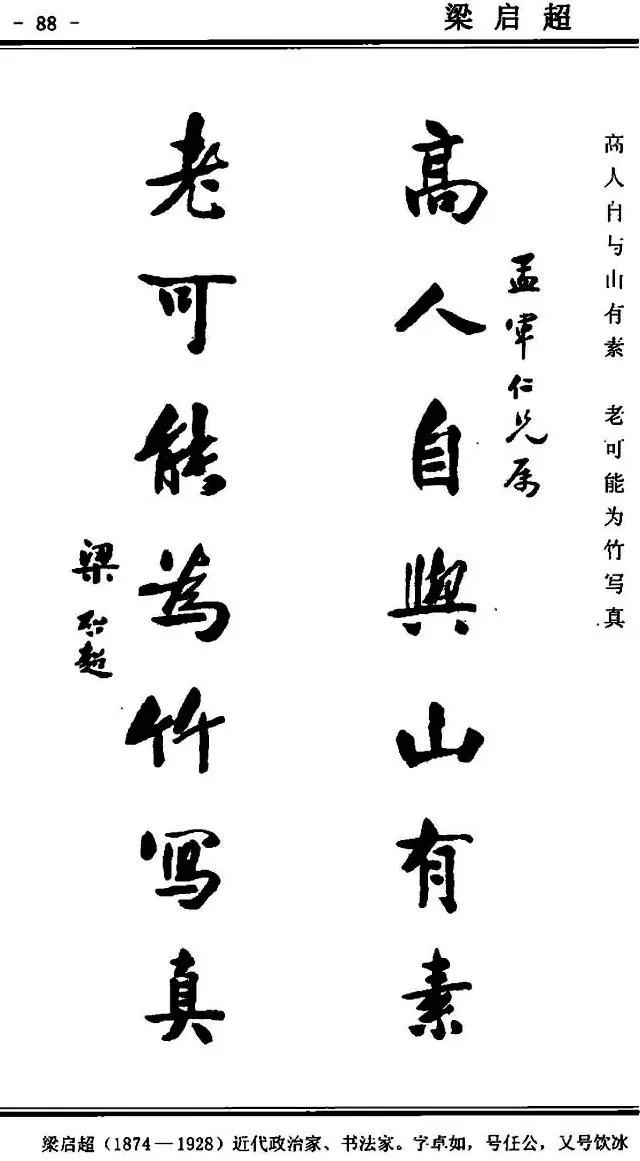 - 88 -
梁启超
高人自与山有素 老可能为竹写真
孟
仁兄属
高人自與山有素
老可能為竹寫真
梁啟超
梁启超（1874—1928）近代政治家、书法家。字卓如，号任公，又号饮冰